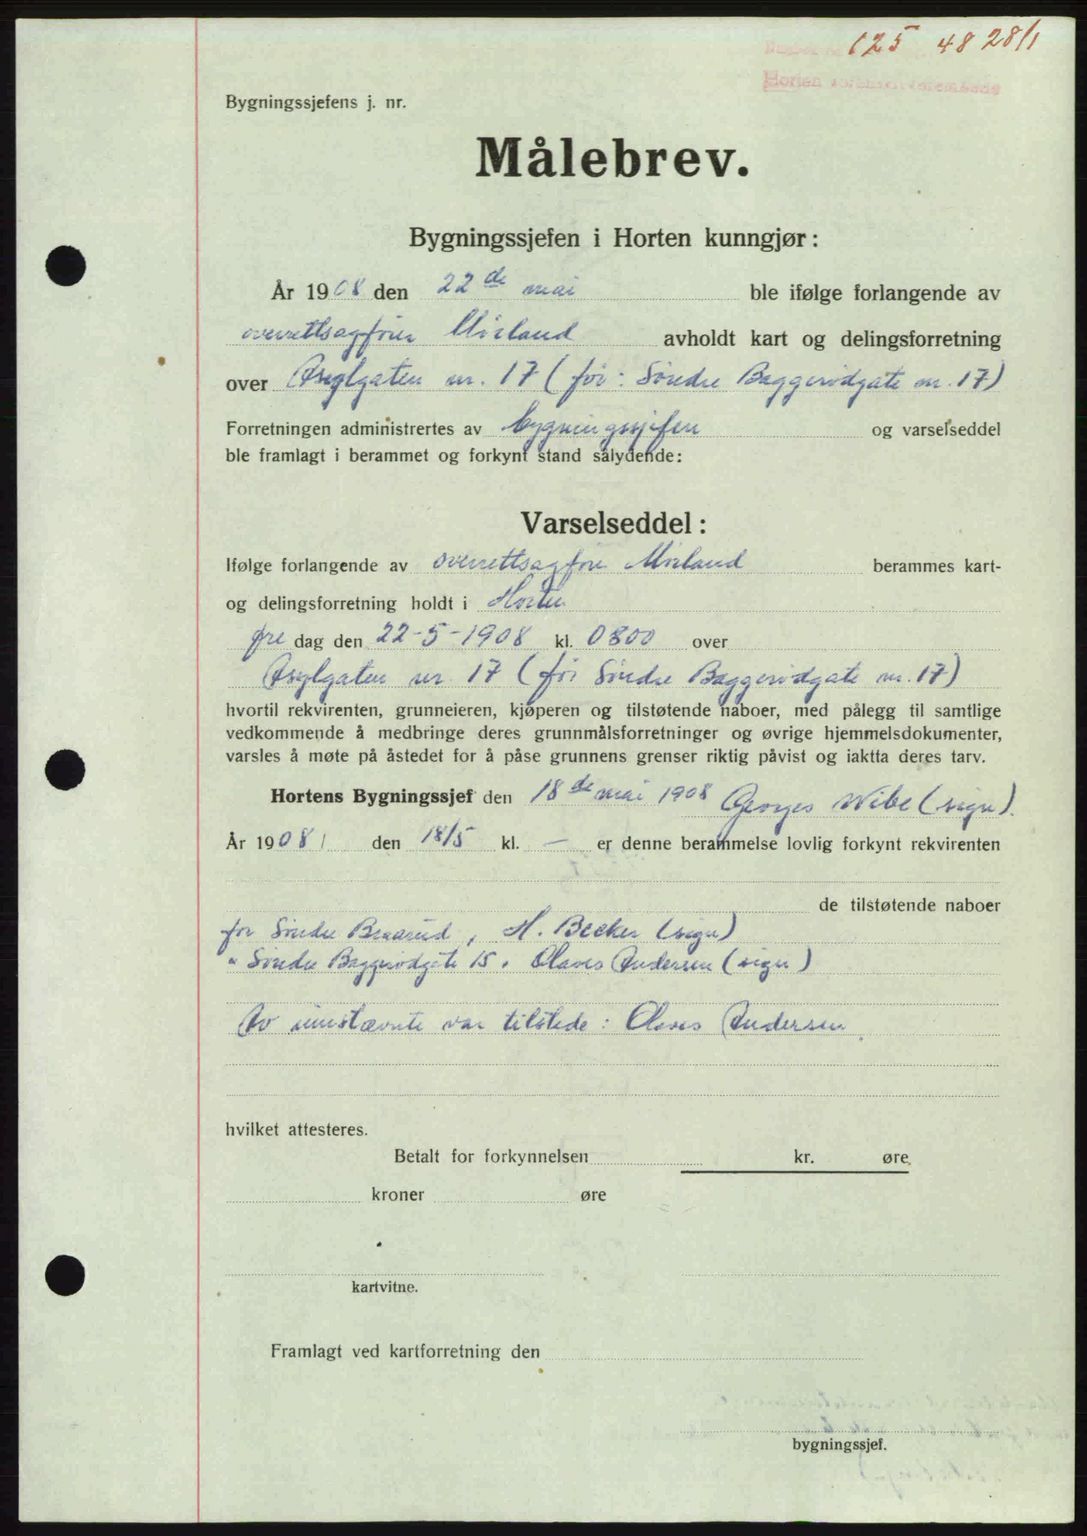 125 48 28/1
Horten
Bygningssjefens j. nr.
Målebrev.
Bygningssjefen i Horten kunngjør:
År 1908 den 22de mai ble ifølge forlangende av
overrettsagfører Mørland avholdt kart og delingsforretning
over Asylgaten nr. 17 (før: Søndre Baggerødgate nr. 17)
Forretningen administrertes av bygningssjefen og varselseddel
ble framlagt i berammet og forkynt stand sålydende:
Varselseddel:
Ifølge forlangende av overrettsagfører Mørland berammes kart-
og delingsforretning holdt i Horten
fre dag den 22-5-1908 kl. 0800 over
Asylgaten nr. 17 (før Søndre Baggerødgate nr. 17)
hvortil rekvirenten, grunneieren, kjøperen og tilstøtende naboer, med pålegg til samtlige
vedkommende å medbringe deres grunnmålsforretninger og øvrige hjemmelsdokumenter,
varsles å møte på åstedet for å påse grunnens grenser riktig påvist og iaktta deres tarv.
Hortens Bygningssjef den 18de mai 1908 Georges Wibe (sign).
År 1908 den 18/5 kl. — er denne berammelse lovlig forkynt rekvirenten
de tilstøtende naboer
for Søndre Braarud, H. Becker (sign)
" Søndre Baggerødgate 15. Olaves Andersen (sign)
Av innstævnte var tilstede: Olaves Andersen
hvilket attesteres.
Betalt for forkynnelsen kr. øre
kroner øre
kartvitne.
Framlagt ved kartforretning den
bygningssjef.